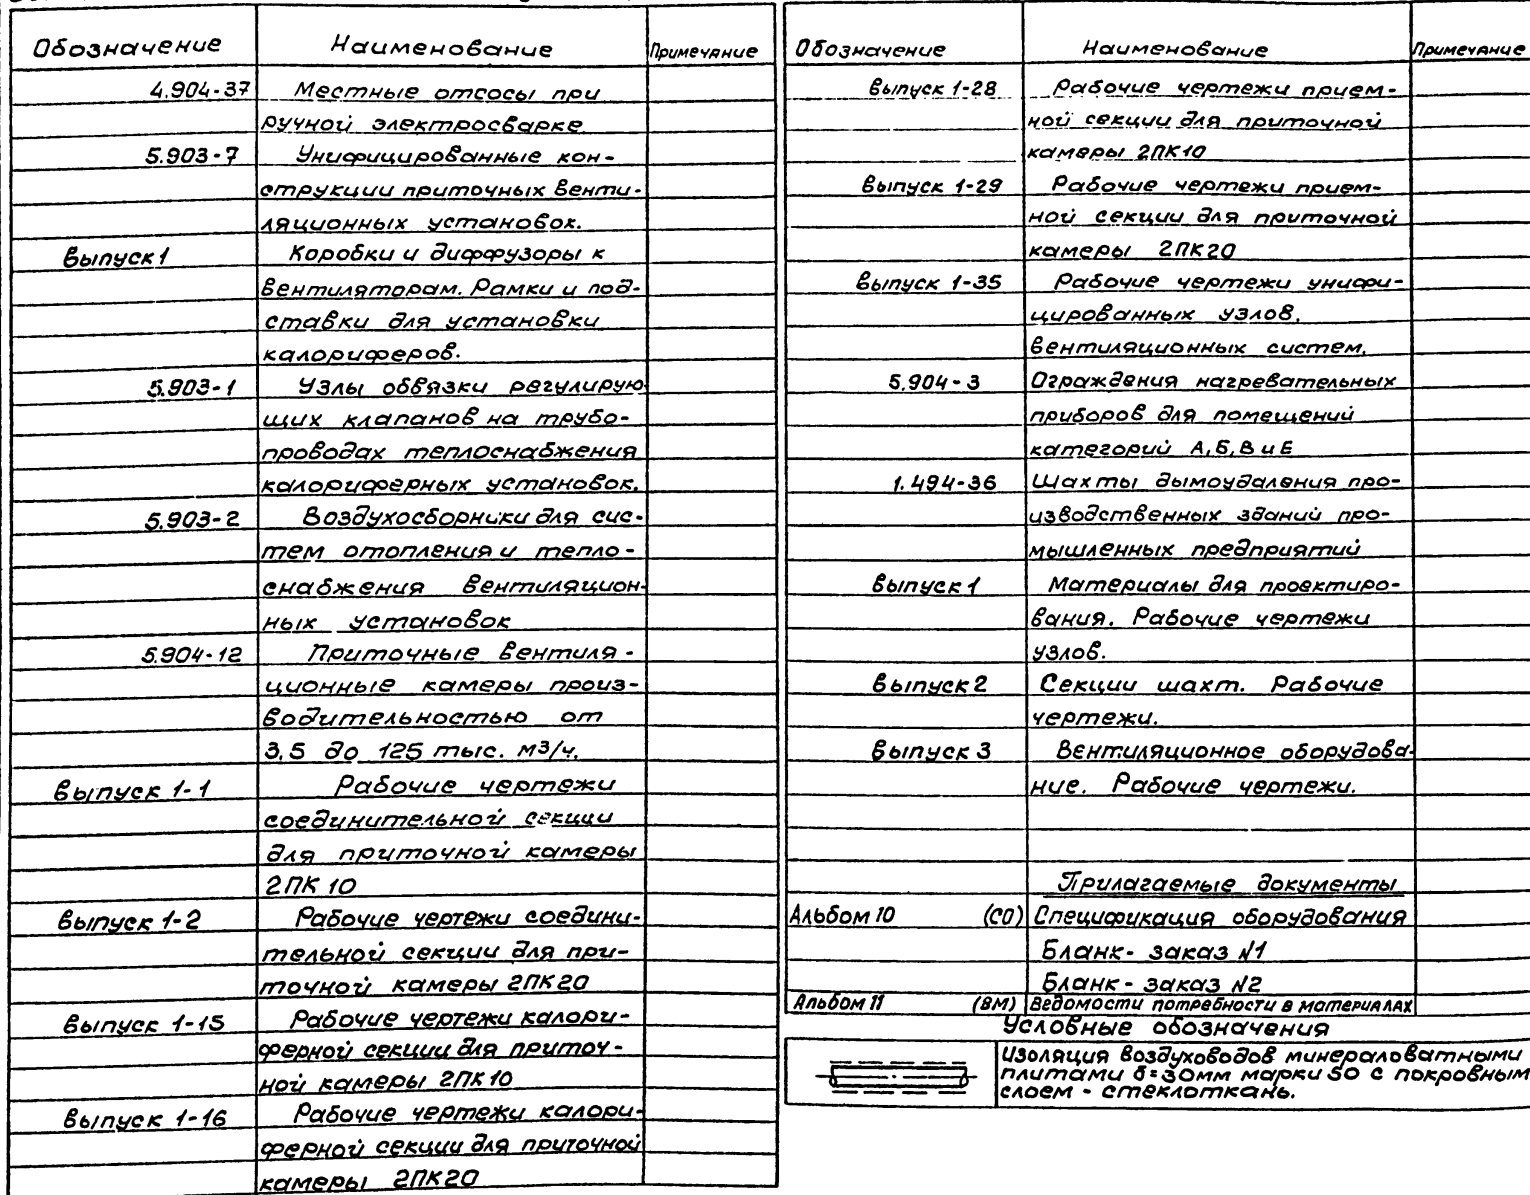 Обозначение Наименование Примечание
4.904-37 Местные отсосы при
ручной электросварке
5.903-7 Унифицированные кон-
струкции приточных венти-
ляционных установок.
Выпуск 1 Коробки и диффузоры к
вентиляторам. Рамки и под-
ставки для установки
калориферов.
5.903-1 Узлы обвязки регулирую-
щих клапанов на трубо-
проводах теплоснабжения
калориферных установок.
5.903-2 Воздухосборники для сис-
тем отопления и тепло-
снабжения вентиляцион-
ных установок
5.904-12 Приточные вентиля-
ционные камеры произ-
водительностью от
3,5 до 125 тыс. м3/ч.
Выпуск 1-1 Рабочие чертежи
соединительной секции
для приточной камеры
2ПК 10
Выпуск 1-2 Рабочие чертежи соедини-
тельной секции для при-
точной камеры 2ПК20
Выпуск 1-15 Рабочие чертежи калори-
ферной секции для приточ-
ной камеры 2ПК10
Выпуск 1-16 Рабочие чертежи калори-
ферной секции для приточной
камеры 2ПК20
Обозначение Наименование Примечание
Выпуск 1-28 Рабочие чертежи прием-
ной секции для приточной
камеры 2ПК10
Выпуск 1-29 Рабочие чертежи прием-
ной секции для приточной
камеры 2ПК20
Выпуск 1-35 Рабочие чертежи унифи-
цированных узлов.
вентиляционных систем.
5.904-3 Ограждения нагревательных
приборов для помещений
категорий А,Б,В и Е
1.494-36 Шахты дымоудаления про-
изводственных зданий про-
мышленных предприятий
Выпуск 1 Материалы для проектиро-
вания. Рабочие чертежи
узлов.
Выпуск 2 Секции шахт. Рабочие
чертежи.
Выпуск 3 Вентиляционное оборудова-
ние. Рабочие чертежи.
Прилагаемые документы
Альбом 10 (СО) Спецификация оборудования
Бланк-заказ №1
Бланк-заказ №2
Альбом 11 (ВМ) Ведомости потребности в материалах
Условные обозначения
Изоляция воздуховодов минераловатными
плитами δ=30мм марки 50 с покровным
слоем - стеклоткань.